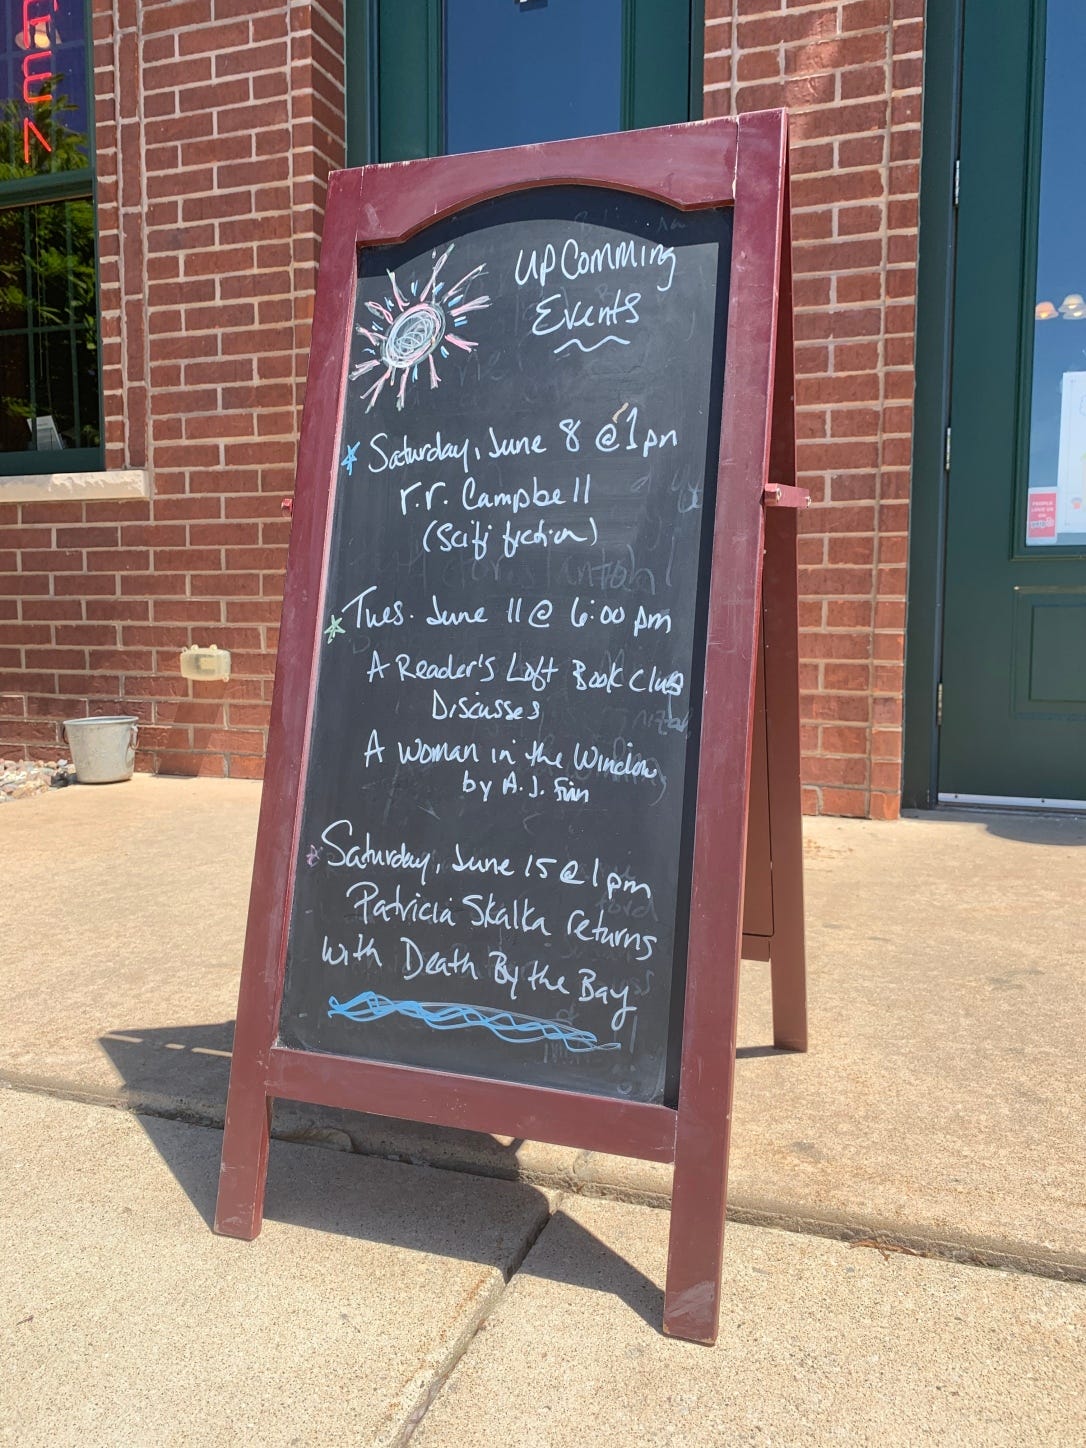 UPComming
Events
Saturday, June 8 @ 1pm
r.r. Campbell
(Scifi fiction)
Tues. June 11 @ 6:00 pm
A Reader's Loft Book Club
Discusses
A Woman in the Window
by A.J. Finn
Saturday, June 15 @ 1pm
Patricia Skalka returns
with Death By the Bay